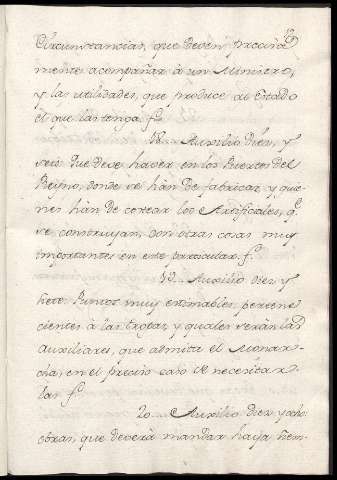 Circunstancias, que deven precisa
mente acompañar à un Ministro,
y las utilidades, que produce al Estado
el que las tenga. f.
18. Auxilio diez, y
seis. Que deve haver en los Puertos del
Reyno, donde se hàn de fabricar, y quie-
nes hàn de costear los Artificiales, q.e
se construyan, con otras cosas muy
importantes en este particular. f.
19. Auxilio diez y
siete. Puntos muy estimables, pertene
cientes à las tropas, y quales seràn las
auxiliares, que admita el Monar-
cha, en el preciso caso de necesitar
las f.
20. Auxilio diez y ocho:
obras, que deverà mandar haya siem-